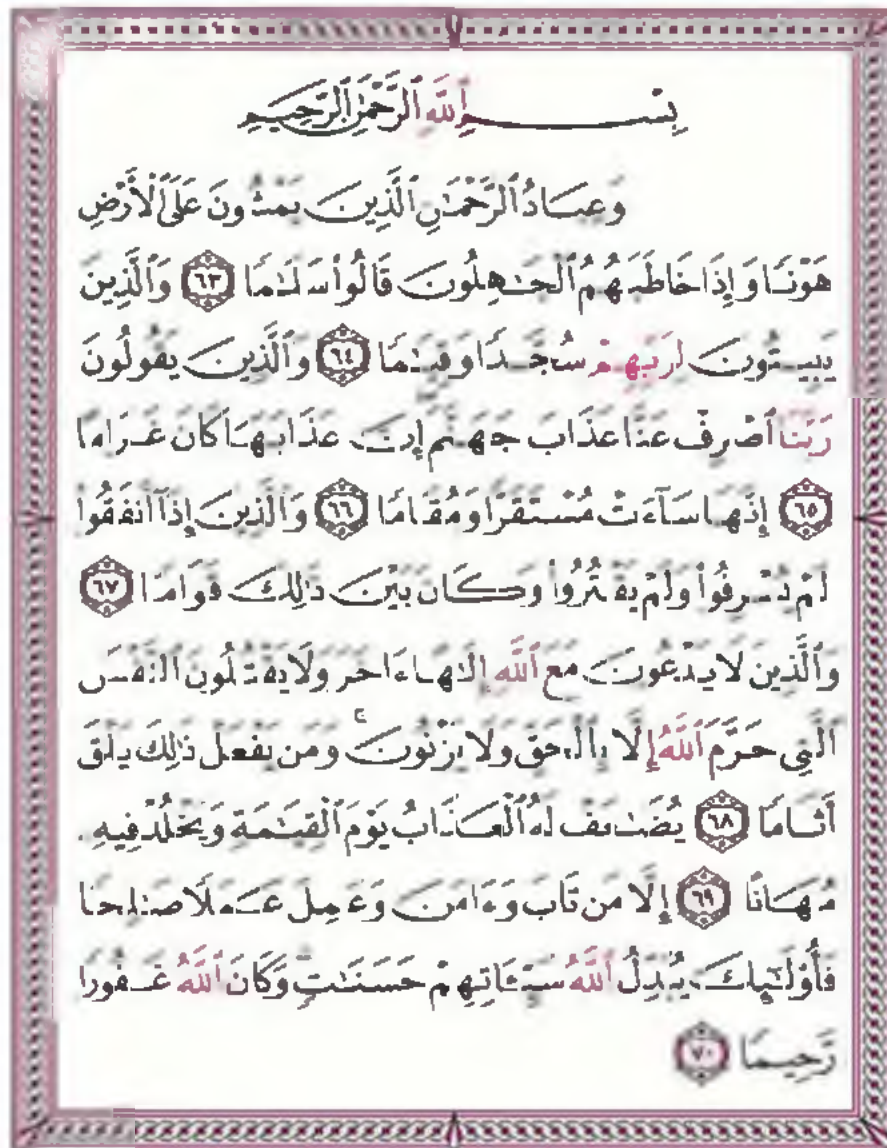 بِسْمِ ٱللَّهِ ٱلرَّحْمَٰنِ ٱلرَّحِيمِ
وَعِبَادُ ٱلرَّحْمَٰنِ ٱلَّذِينَ يَمْشُونَ عَلَى ٱلْأَرْضِ
هَوْنًا وَإِذَا خَاطَبَهُمُ ٱلْجَٰهِلُونَ قَالُوا۟ سَلَٰمًا ٦٣ وَٱلَّذِينَ
يَبِيتُونَ لِرَبِّهِمْ سُجَّدًا وَقِيَٰمًا ٦٤ وَٱلَّذِينَ يَقُولُونَ
رَبَّنَا ٱصْرِفْ عَنَّا عَذَابَ جَهَنَّمَ إِنَّ عَذَابَهَا كَانَ غَرَامًا
٦٥ إِنَّهَا سَآءَتْ مُسْتَقَرًّا وَمُقَامًا ٦٦ وَٱلَّذِينَ إِذَآ أَنفَقُوا۟
لَمْ يُسْرِفُوا۟ وَلَمْ يَقْتُرُوا۟ وَكَانَ بَيْنَ ذَٰلِكَ قَوَامًا ٦٧
وَٱلَّذِينَ لَا يَدْعُونَ مَعَ ٱللَّهِ إِلَٰهًا ءَاخَرَ وَلَا يَقْتُلُونَ ٱلنَّفْسَ
ٱلَّتِى حَرَّمَ ٱللَّهُ إِلَّا بِٱلْحَقِّ وَلَا يَزْنُونَ ۚ وَمَن يَفْعَلْ ذَٰلِكَ يَلْقَ
أَثَامًا ٦٨ يُضَٰعَفْ لَهُ ٱلْعَذَابُ يَوْمَ ٱلْقِيَٰمَةِ وَيَخْلُدْ فِيهِۦ
مُهَانًا ٦٩ إِلَّا مَن تَابَ وَءَامَنَ وَعَمِلَ عَمَلًا صَٰلِحًا
فَأُو۟لَٰٓئِكَ يُبَدِّلُ ٱللَّهُ سَيِّـَٔاتِهِمْ حَسَنَٰتٍ ۗ وَكَانَ ٱللَّهُ غَفُورًا
رَّحِيمًا ٧٠